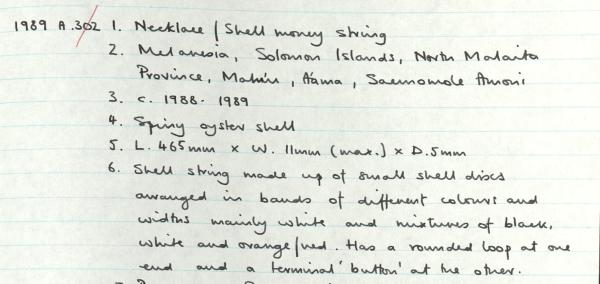 1989 A.302 1. Necklace / Shell money string
2. Melanesia, Solomon Islands, North Malaita
Province, Malu'u, A'ama, Saemomole Amoni
3. c. 1988 - 1989
4. Spiny oyster shell
5. L. 465mm x W. 11mm (max.) x D. 5mm
6. Shell string made up of small shell discs
arranged in bands of different colours and
widths mainly white and mixtures of black,
white and orange/red. Has a rounded loop at one
end and a terminal 'button' at the other.